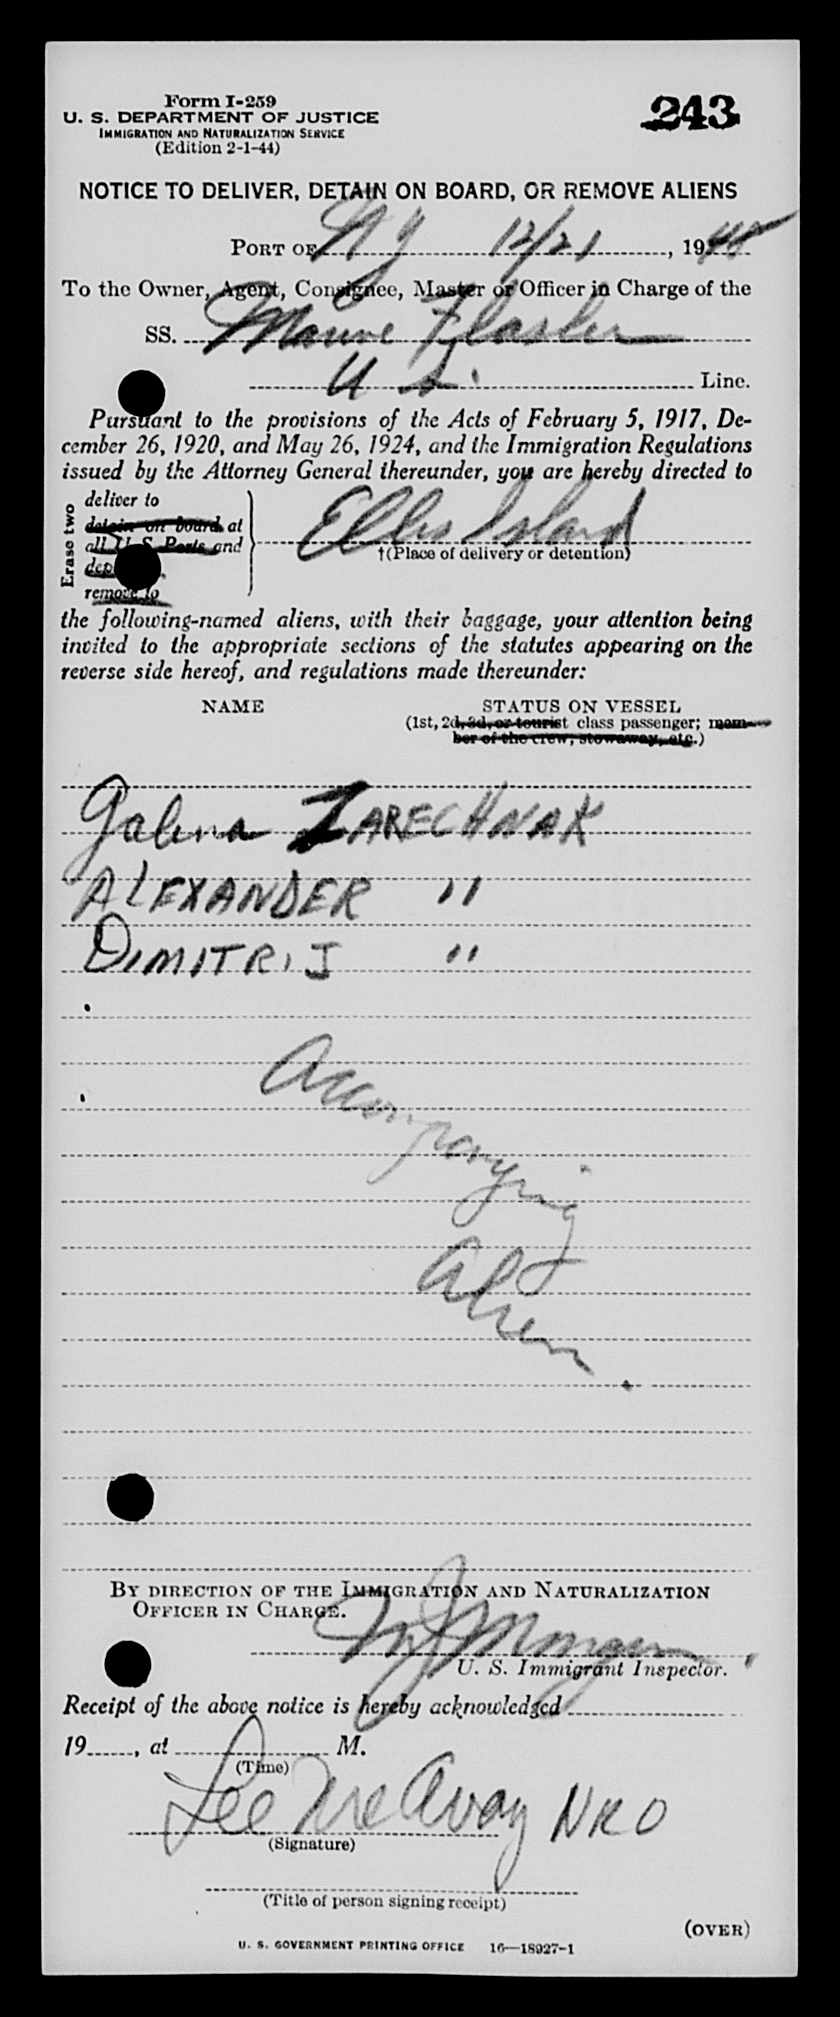 Form I-259
U. S. DEPARTMENT OF JUSTICE
IMMIGRATION AND NATURALIZATION SERVICE
(Edition 2-1-44)
243
NOTICE TO DELIVER, DETAIN ON BOARD, OR REMOVE ALIENS
PORT OF N Y 12/21, 1948
To the Owner, Agent, Consignee, Master or Officer in Charge of the
SS. Marine Flasher
U S. Line.
Pursuant to the provisions of the Acts of February 5, 1917, De-
cember 26, 1920, and May 26, 1924, and the Immigration Regulations
issued by the Attorney General thereunder, you are hereby directed to
Erase two
deliver to
detain on board at
all U S Ports and
remove to
Ellis Island
†(Place of delivery or detention)
the following-named aliens, with their baggage, your attention being
invited to the appropriate sections of the statutes appearing on the
reverse side hereof, and regulations made thereunder:
NAME STATUS ON VESSEL
(1st, 2d, 3d, or tourist class passenger; mem-
ber of the crew, stowaway, etc.)
Galina ZARECHNAK
ALEXANDER "
DIMITRIJ "
Accompanying
Alien.
BY DIRECTION OF THE IMMIGRATION AND NATURALIZATION
OFFICER IN CHARGE.
U. S. Immigrant Inspector.
Receipt of the above notice is hereby acknowledged
19, at M.
(Time)
Lee NRO
(Signature)
(Title of person signing receipt)
(OVER)
U. S. GOVERNMENT PRINTING OFFICE 16—18927-1